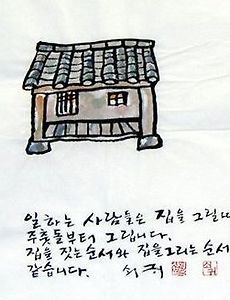 일하는 사람들은 집을 그릴 때
주춧돌부터 그립니다.
집을 짓는 순서와 집을 그리는 순서
같습니다.